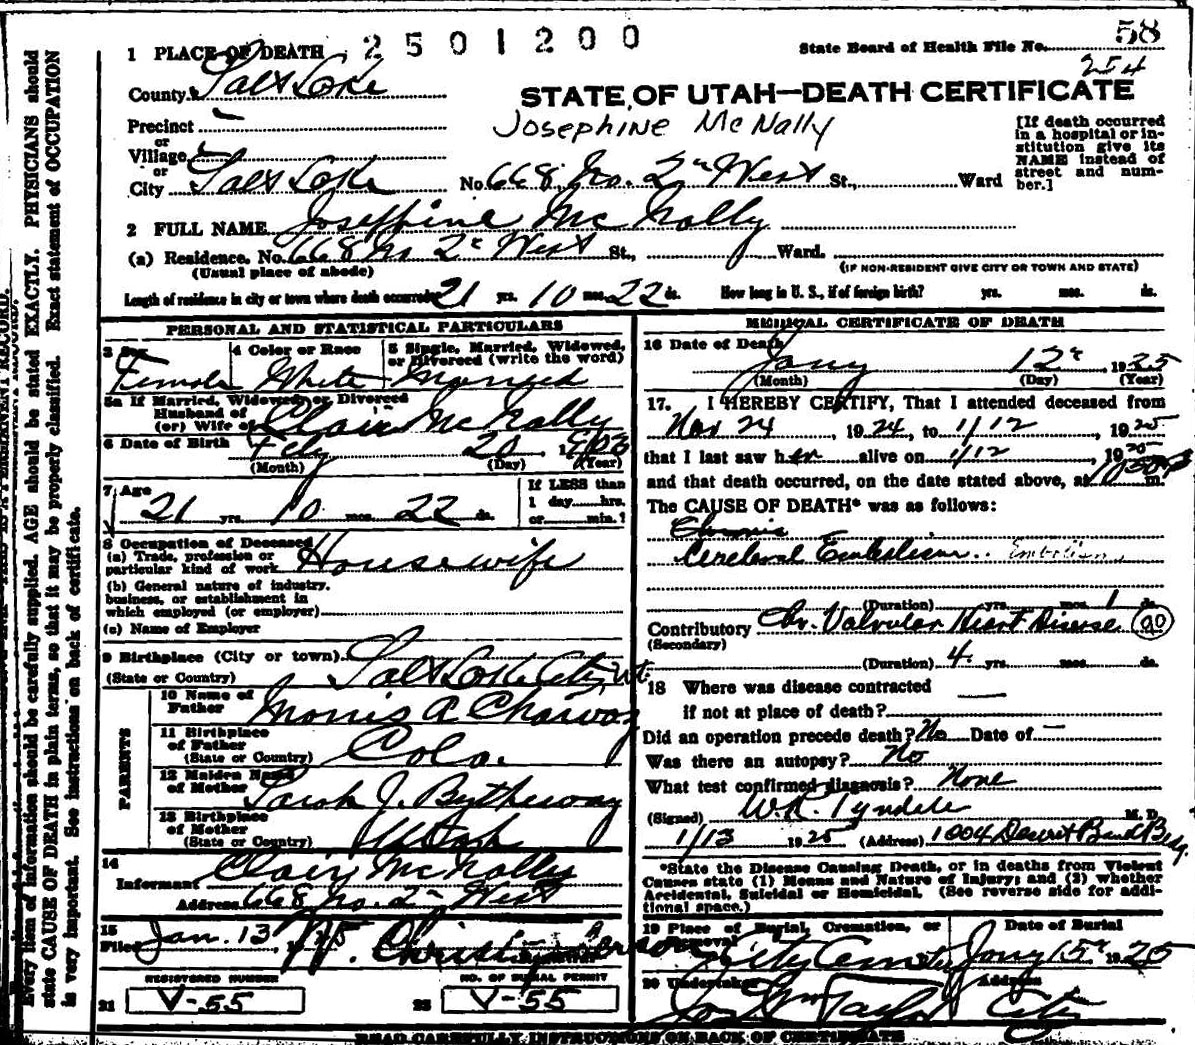 58
2501200
State Board of Health File No. 254
1 PLACE OF DEATH
County Salt Lake
STATE OF UTAH—DEATH CERTIFICATE
Josephine McNally
Precinct
or
Village
or
City Salt Lake No. 668 No. 2nd West St., Ward
[If death occurred
in a hospital or in-
stitution give its
NAME instead of
street and num-
ber.]
2 FULL NAME Josephine McNally
(a) Residence. No. 668 No 2nd West St., Ward.
(Usual place of abode)
(IF NON-RESIDENT GIVE CITY OR TOWN AND STATE)
Length of residence in city or town where death occurred 21 yrs. 10 mos. 22 ds. How long in U. S., if of foreign birth? yrs. mos. ds.
PERSONAL AND STATISTICAL PARTICULARS
3 Sex
Female
4 Color or Race
White
5 Single, Married, Widowed,
or Divorced (write the word)
Married
5a If Married, Widowed, or Divorced
Husband of
(or) Wife of Clair McNally
6 Date of Birth Feby 20, 1903
(Month) (Day) (Year)
7 Age
21 yrs. 10 mos. 22 ds.
If LESS than
1 day hrs.
or min.?
8 Occupation of Deceased
(a) Trade, profession or
particular kind of work Housewife
(b) General nature of industry,
business, or establishment in
which employed (or employer)
(c) Name of Employer
9 Birthplace (City or town)
(State or Country) Salt Lake City Ut
PARENTS
10 Name of
Father Morris A
11 Birthplace
of Father
(State or Country) Colo.
12 Maiden Name
of Mother Sarah J. Bytheway
13 Birthplace
of Mother
(State or Country) Utah
14
Informant Clair McNally
Address 668 No. 2nd West
15
Filed Jan. 13, 1925
REGISTERED NUMBER
21 V-55
NO. OF BURIAL PERMIT
22 V-55
MEDICAL CERTIFICATE OF DEATH
16 Date of Death
Jany 12", 1925
(Month) (Day) (Year)
17. I HEREBY CERTIFY, That I attended deceased from
Nov 24, 1924, to 1/12, 1925
that I last saw her alive on 1/12, 1925
and that death occurred, on the date stated above, at m.
The CAUSE OF DEATH* was as follows:
Cerebral Embolism.. Embolism
(Duration) yrs. mos. 1 ds.
Contributory Chr. Valvular Heart Disease 90
(Secondary)
(Duration) 4 yrs. mos. ds.
18 Where was disease contracted
if not at place of death?
Did an operation precede death? No Date of —
Was there an autopsy? No
What test confirmed diagnosis? None
(Signed) W.R. Tyndale M. D.
1/13 1925 (Address) 1004 Deseret Bank Bldg.
*State the Disease Causing Death, or in deaths from Violent
Causes state (1) Means and Nature of Injury; and (2) whether
Accidental, Suicidal or Homicidal. (See reverse side for addi-
tional space.)
19 Place of Burial, Cremation, or
Removal
City Cemetery
Date of Burial
Jany 15" 1925
20 Undertaker
Jos. Wm Taylor
Address
City
READ CAREFULLY INSTRUCTIONS ON BACK OF CERTIFICATE
Every item of information should be carefully supplied. AGE should be stated EXACTLY. PHYSICIANS should
state CAUSE OF DEATH in plain terms, so that it may be properly classified. Exact statement of OCCUPATION
is very important. See instructions on back of certificate.